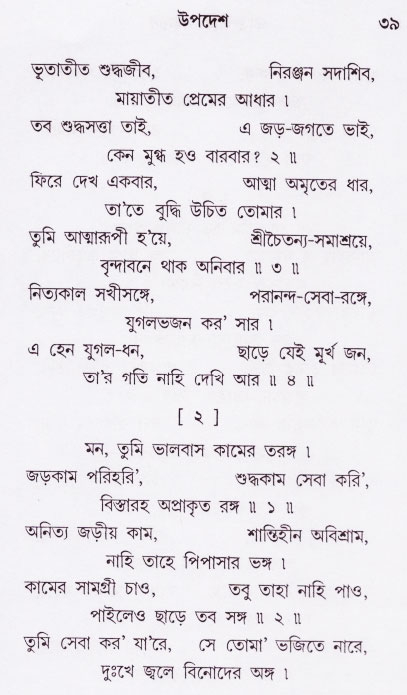 উপদেশ ৩৯
ভূতাতীত শুদ্ধজীব, নিরঞ্জন সদাশিব,
মায়াতীত প্রেমের আধার ।
তব শুদ্ধসত্তা তাই, এ জড়-জগতে ভাই,
কেন মুগ্ধ হও বারবার? ২ ॥
ফিরে দেখ একবার, আত্মা অমৃতের ধার,
তা'তে বুদ্ধি উচিত তোমার ।
তুমি আত্মারূপী হ'য়ে, শ্রীচৈতন্য-সমাশ্রয়ে,
বৃন্দাবনে থাক অনিবার ॥ ৩ ॥
নিত্যকাল সখীসঙ্গে, পরানন্দ-সেবা-রঙ্গে,
যুগলভজন কর' সার ।
এ হেন যুগল-ধন, ছাড়ে যেই মূর্খ জন,
তা'র গতি নাহি দেখি আর ॥ ৪ ॥
[ ২ ]
মন, তুমি ভালবাস কামের তরঙ্গ ।
জড়কাম পরিহরি', শুদ্ধকাম সেবা করি',
বিস্তারহ অপ্রাকৃত রঙ্গ ॥ ১ ॥
অনিত্য জড়ীয় কাম, শান্তিহীন অবিশ্রাম,
নাহি তাহে পিপাসার ভঙ্গ ।
কামের সামগ্রী চাও, তবু তাহা নাহি পাও,
পাইলেও ছাড়ে তব সঙ্গ ॥ ২ ॥
তুমি সেবা কর' যা'রে, সে তোমা' ভজিতে নারে,
দুঃখে জ্বলে বিনোদের অঙ্গ ।